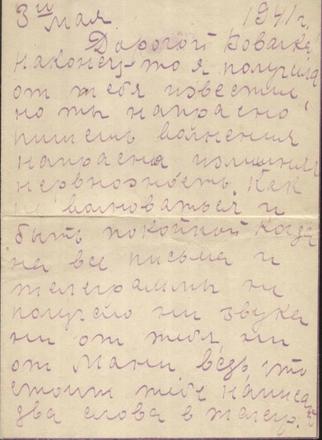 3го мая 1941 г.
Дорогой Вовочка!
наконец-то я получила
от тебя известие
но ты напрасно
пишешь волнения
напрасны излишняя
нервозность. Как
не волноваться и
быть покойной когда
на все письма и
телеграммы не
получаю ни звука
ни от тебя, ни
от Мани ведь, что
стоит тебе написать
два слова в телегр.